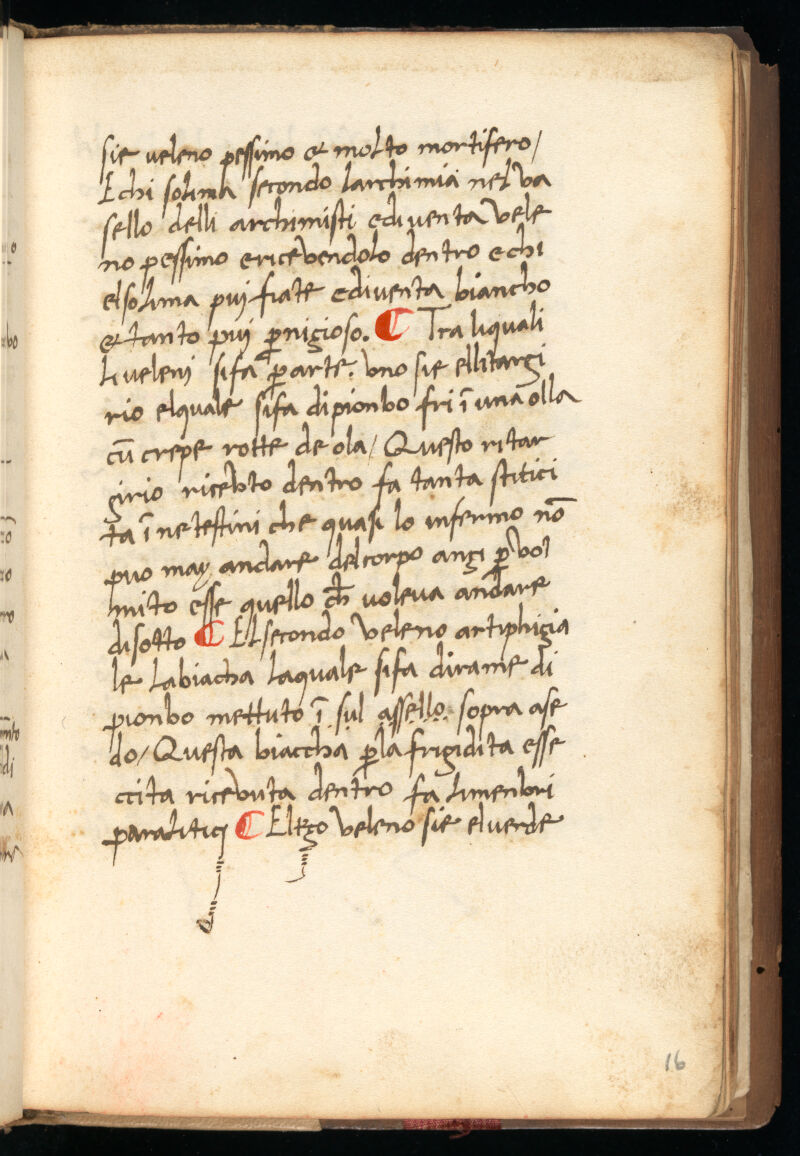 sie veleno pessimo & molto mortifero/
E chi solima secondo larchimia nel va
sello delli archimisti ediventa vele
no pessimo ericevendolo dentro echi
elsolima pui fiate ediventa biancho
& tanto pui ꝑnigioso. ¶ Tra liquali
li veleni sifa ꝑ arte. Uno sie ellitargi
rio elquale sifa dipionbo fri ī una olla
cū crepe rotte de ola/ Questo ritar
girio ricevto dentro fa tanta stitici
ta ī ne testini che quasi lo infermo nō
puo may andare delcorpo angi ꝑ vol
mito esse quello cħ voleva andare
disotto ¶ El secondo veleno artiphigia
le labiacha laquale sifa dirame di
pionbo mettuto ī sul assello sopra ase
do/ Questa biaccha ꝑla frigidita esse
ccita ricevuta dentro fa limenbri
paralitici ¶ El tzo veleno sie elverde
16